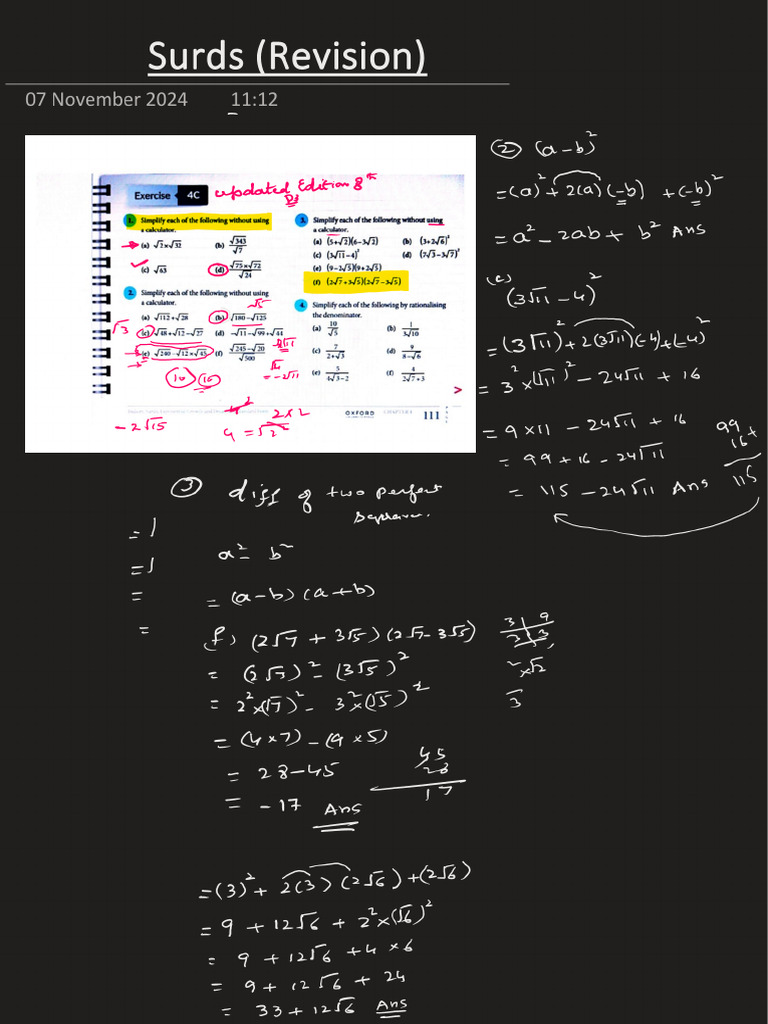 Surds (Revision)
07 November 2024 11:12
Exercise 4C updated Edition 8th
1. Simplify each of the following without using
a calculator.
(a) √2 × √32 (b) √343/√7
(c) √63 (d) √75 × √72/√24
2. Simplify each of the following without using
a calculator.
(a) √112 + √28 (b) √180 − √125
(c) √48 + √12 − √27 (d) −√11 − √99 + √44
(e) √240 − √12 × √45 (f) √245 − √20/√500
3. Simplify each of the following without using
a calculator.
(a) (5+√2)(6−3√2) (b) (3+2√6)²
(c) (3√11−4)² (d) (2√3−3√7)²
(e) (9−2√5)(9+2√5)
(f) (2√7+3√5)(2√7−3√5)
4. Simplify each of the following by rationalising
the denominator.
(a) 10/√5 (b) 1/3√10
(c) 7/2+√3 (d) 9/8−√6
(e) 5/4√3−2 (f) 4/2√7+3
√5
√3
−2√11
10 10
−2√15
2×2
4 = √2²
OXFORD CHAPTER 4 111
② (a−b)²
= (a)² + 2(a)(−b) + (−b)²
= a² − 2ab + b² Ans
(c)
(3√11 − 4)²
= (3√11)² + 2(3√11)(−4) + (−4)²
= 3² × (√11)² − 24√11 + 16
= 9 × 11 − 24√11 + 16
= 99 + 16 − 24√11
= 115 − 24√11 Ans
99
16+
115
③ diff of two perfect
a² − b²
= (a−b)(a+b)
(f) (2√7 + 3√5)(2√7 − 3√5)
= (2√7)² − (3√5)²
= 2² × (√7)² − 3² × (√5)²
= (4×7) − (9×5)
= 28 − 45
= −17 Ans
45
28
17
= (3)² + 2(3)(2√6) + (2√6)
= 9 + 12√6 + 2² × (√6)²
= 9 + 12√6 + 4 × 6
= 9 + 12√6 + 24
= 33 + 12√6 Ans